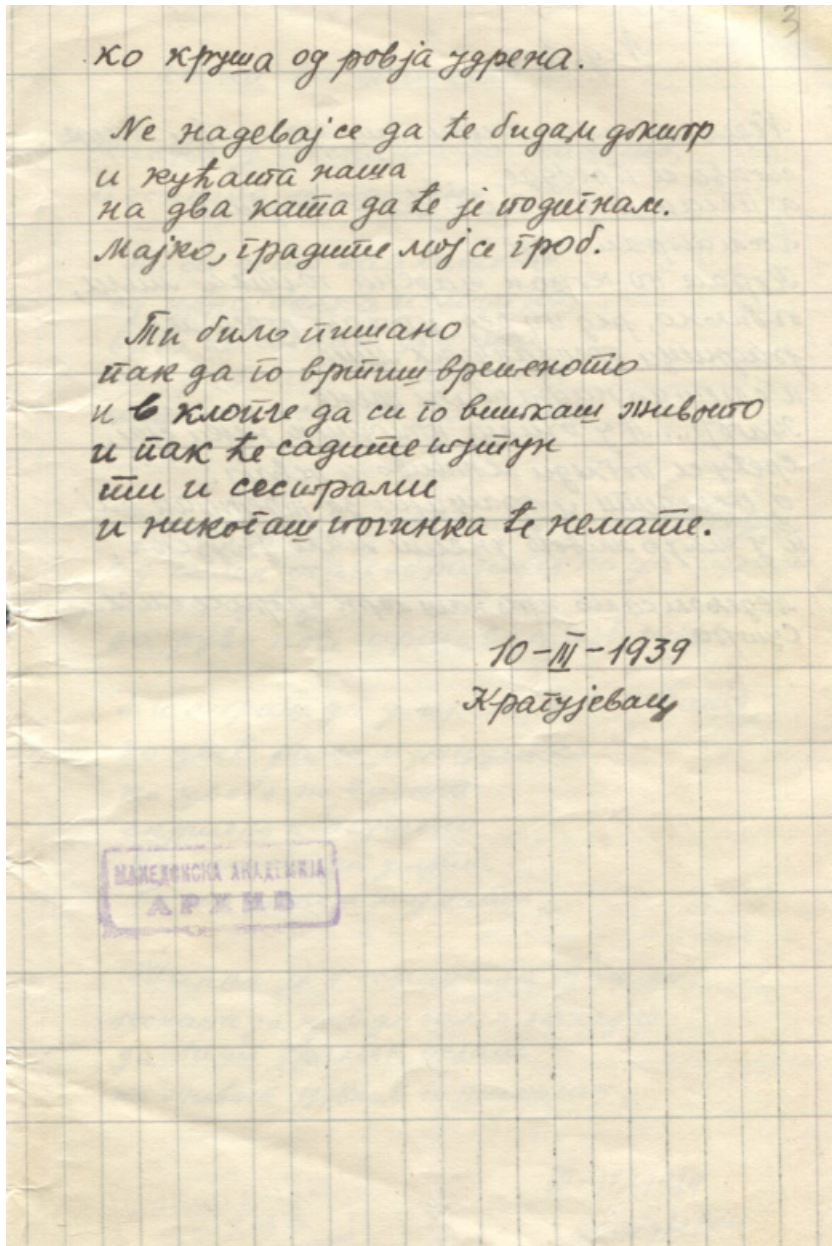 3
ко круша од ровја удрена.
Не надевај се да ће бидам доктор
и кућата наша
на два ката да ће је подигнам.
Мајко, градите мој се гроб.
Ти било пишано
пак да го вртиш вретеното
и в клопче да си го виткаш живото
и пак ће садите тутун
ти и сестрами
и никогаш починка ће немате.
10-III-1939
Крагујевац
МАКЕДОНСКА АКАДЕМИЈА
АРХИВ